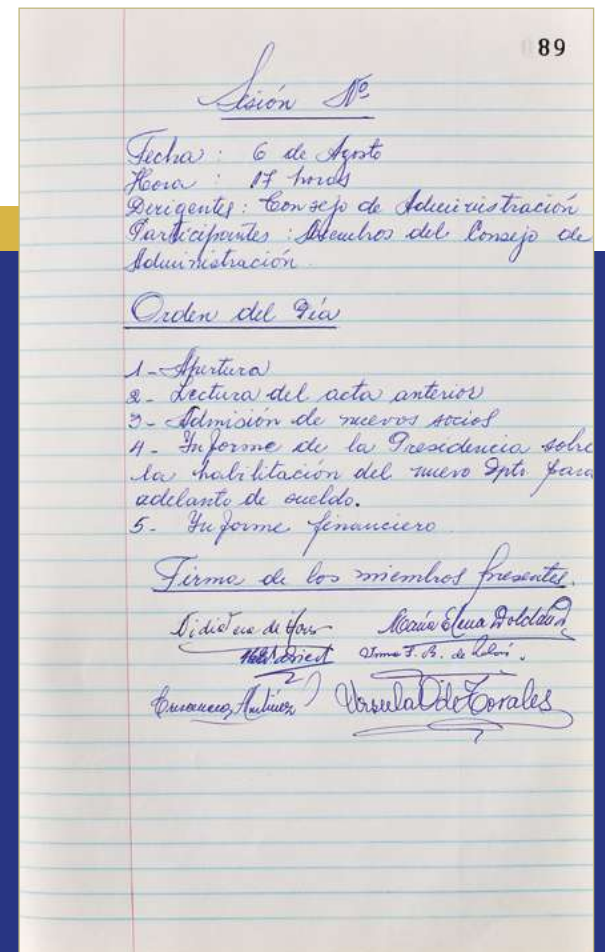 89
Sesión Nº
Fecha : 6 de Agosto
Hora : 17 horas
Dirigentes : Consejo de Administración
Participantes : Miembros del Consejo de
Administración
Orden del Día
1 - Apertura
2 - Lectura del acta anterior
3 - Admisión de nuevos socios
4 - Informe de la Presidencia sobre
la habilitación del nuevo Dpto. para
adelanto de sueldo.
5 - Informe financiero
Firma de los miembros presentes.
María Elena Roldán
Irma F. B. de
Ursula O de Torales